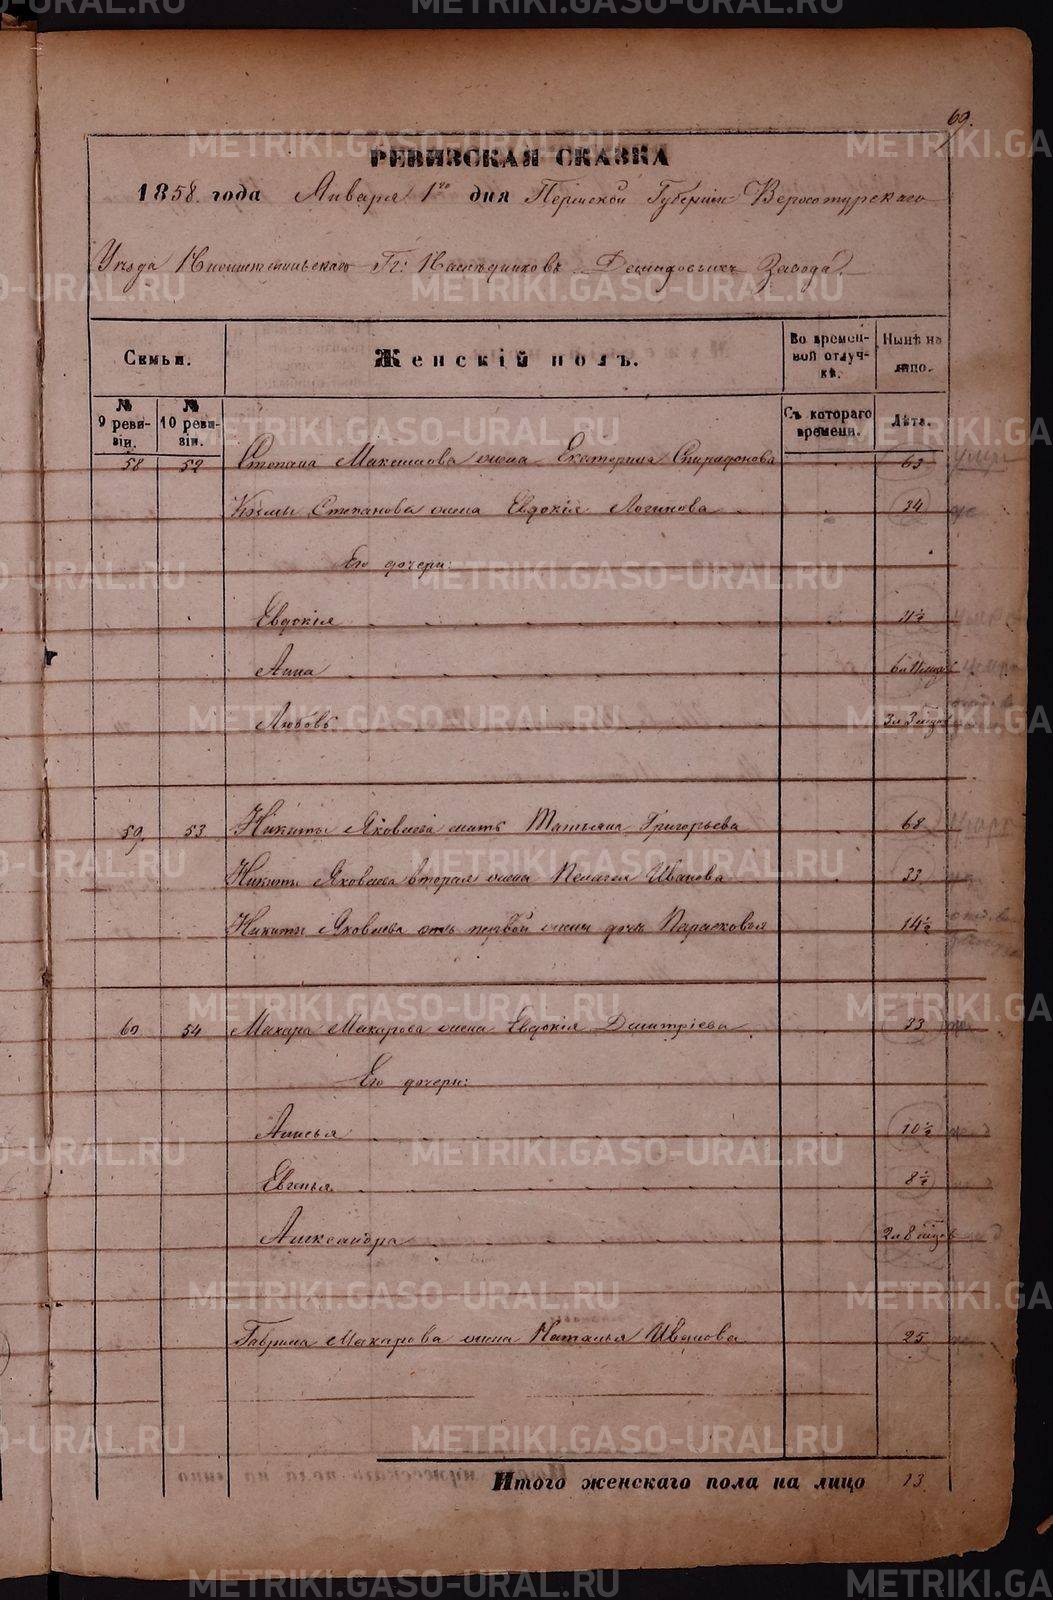 69.
РЕВИЗСКАЯ СКАЗКА
1858. года Января 1го дня Пермской Губернии Верхотурскаго
Уезда Гг: Наследниковъ Демидовыхъ Завода.
Семьи. Женскій полъ. Во времен-ной отлуч-кѣ. Нынѣ на лицо.
№ 9 реви-зіи. № 10 реви-зіи. Съ котораго времени. Лѣта.
58 52 Степана Максимова жена Екатерина Спиридонова 63
Козмы Степанова жена Евдокія Логинова 34
Его дочери:
Евдокія 11½
Анна 6 л 11 мцов
Любовь 3 л 3 мцов
59. 53 Никиты Яковлева мать Татьяна Григорьева 68
Никиты Яковлева вторая жена Пелагея Иванова 33
Никиты Яковлева отъ первой жены дочь Парасковья 14½
60 54 Макара Макарова жена Евдокія Дмитріева 33
Его дочери:
Анисья 10½
Евгенья 8½
Александра 2 л 8 мцов
Гаврила Макарова жена Наталья Иванова 25
Итого женскаго пола на лицо 13
METRIKI.GASO-URAL.RU